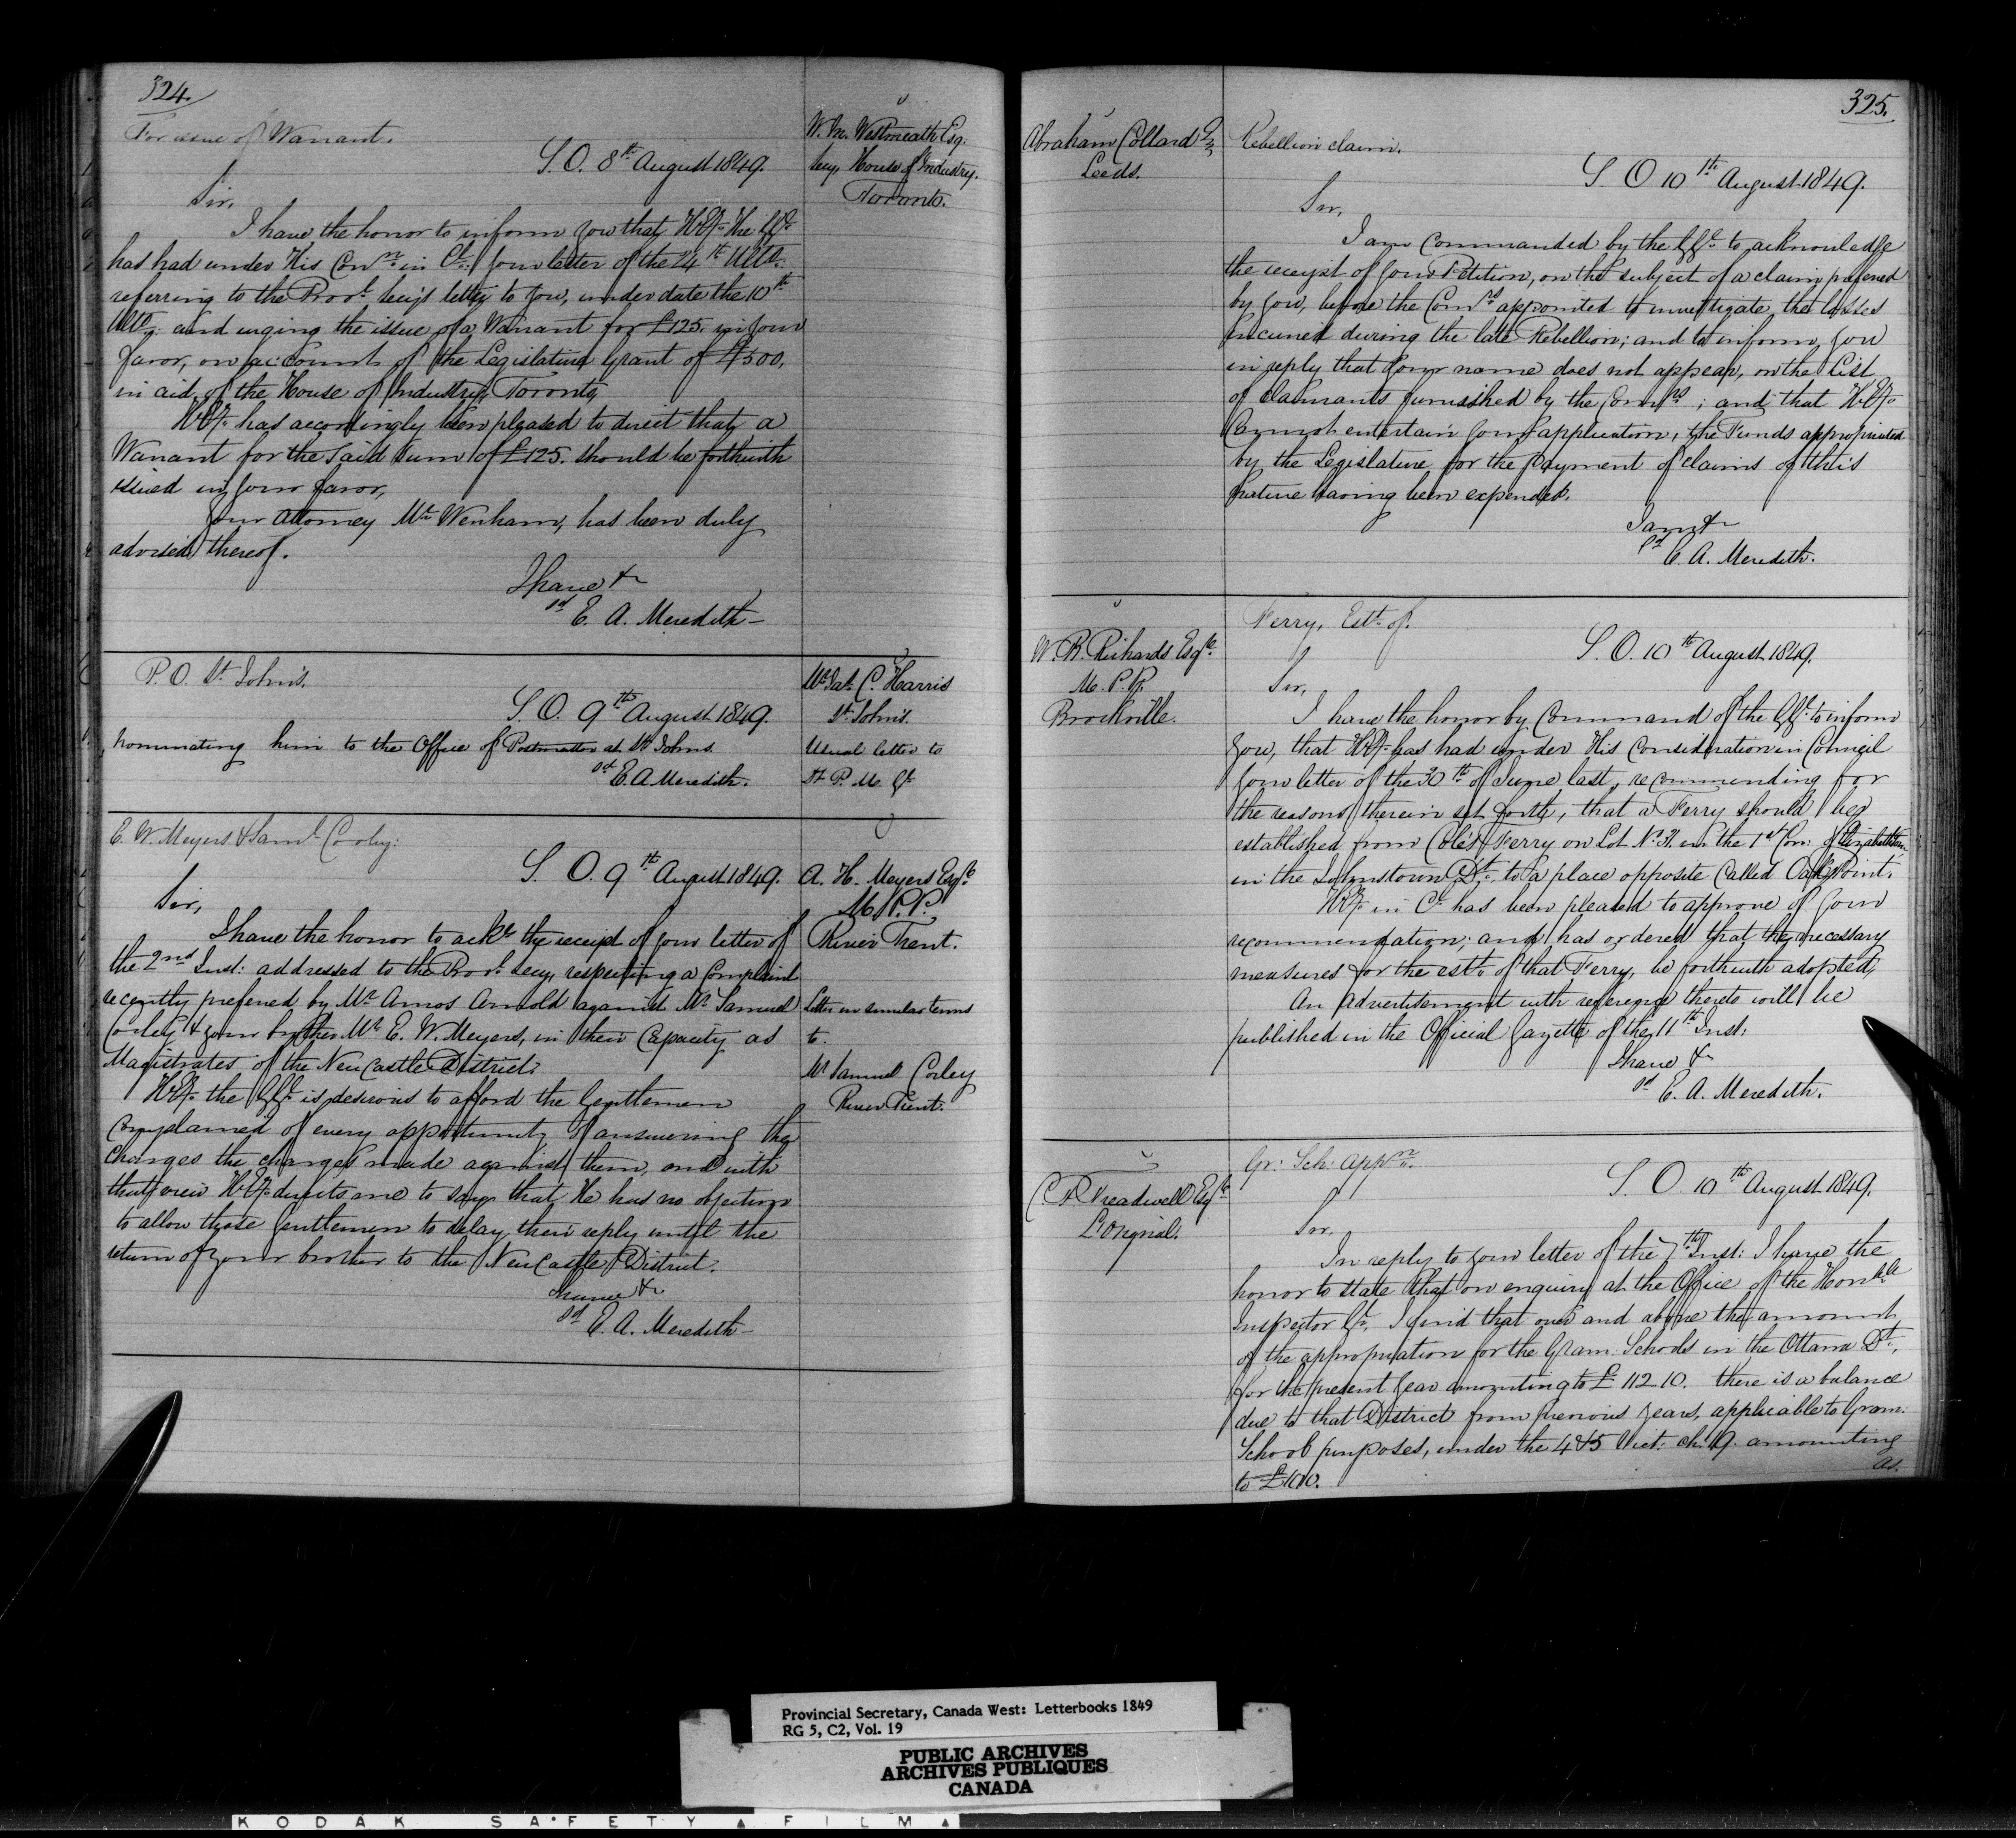 324.
For issue of Warrant.
S.O. 8th August 1849.
W. M. Westmeath Esq:
Secy, House of Industry.
Toronto.
Sir,
I have the honor to inform you that H.Ey. the GGl.
has had under His Conn. in Cl: your letter of the 24th Ulto.
referring to the Provl. Secy's letter to you, under date the 10th
Ulto; and urging the issue of a Warrant for £125. in your
favor, on account of the Legislative Grant of £500,
in aid of the House of Industry, Toronto,
H.Ey. has accordingly been pleased to direct that a
Warrant for the said sum of £125. should be forthwith
issued in your favor,
Your Attorney Mr Wenham, has been duly
advised thereof.
I have &c
sd E. A. Meredith—
P.O. St. John's.
S.O. 9th August 1849.
C. Harris
St. John's.
nominating him to the Office of Postmaster at St Johns.
Usual letter to
sd E. A. Meredith.
P. M. Gl
E. W. Meyers & Saml. Corley:
S.O. 9th August 1849.
A. H. Meyers Esqre.
M.P.P.
River Trent.
Sir,
I have the honor to ackl. the receipt of your letter of
the 2nd Inst: addressed to the Provl. Secy, respecting a Complaint
recently preferred by Mr Amos Arnold against Mr Samuel
Corley & your brother Mr E. W. Meyers, in their Capacity as
Magistrates of the NewCastle District.
Letter in similar terms
to.
Mr Samuel Corley
River Trent.
H.Ey. the GGl. is desirous to afford the Gentlemen
Complained of every opportunity of answering the
Charges the charges made against them, and with
that view H.Ey. directs me to say that He has no objection
to allow those Gentlemen to delay their reply until the
return of your brother to the NewCastle District.
I have &c
sd E. A. Meredith—
325.
Abraham Collard
Leeds.
Rebellion claim.
S.O 10th August 1849.
Sir,
I am Commanded by the GGl. to acknowledge
the receipt of your Petition, on the subject of a claim preferred
by you, before the Comrs appointed to investigate the losses
incurred during the late Rebellion; and to inform you
in reply that your name does not appear, on the List
of Claimants furnished by the Comrs; and that H.Ey.
Cannot entertain your application, the Funds appropriated
by the Legislature for the payment of claims of this
nature having been expended.
I am &c
sd E. A. Meredith.
W. B. Richards Esqre.
M.P.P.
Brockville.
Ferry, Estt. of.
S.O. 10th August 1849.
Sir,
I have the honor by Command of the GGl. to inform
You, that H.Ey. has had under His Consideration in Council
your letter of the 30th of June last, recommending for
the reasons therein set forth, that a Ferry should be
established from Cole's Ferry on Lot No 31. in the 1st Con: of Elizabethtown
in the Johnstown Dt. to a place opposite Called Oak Point.
H.Ey. in Cl has been pleased to approve of your
recommendation; and has ordered that the necessary
measures for the estt. of that Ferry, be forthwith adopted,
An Advertisement with reference thereto will be
published in the Official Gazette of the 11th Inst:
I have &
sd E. A. Meredith.
C. P. Treadwell Esqre
L'Orignal.
Gr: Sch: Appn.
S.O. 10th August 1849.
Sir,
In reply to your letter of the 7th Inst: I have the
honor to state that on enquiry at the Office of the Honble
Inspector Gl. I find that over and above the amount
of the appropriation for the Gram. Schools in the Ottawa Dt,
for the present year amounting to £ 112.10. there is a balance
due to that District from previous years, applicable to Gram.
School purposes, under the 4 & 5 Vict: ch: 19. amounting
to £100.
as.
Provincial Secretary, Canada West: Letterbooks 1849
RG 5, C2, Vol. 19
PUBLIC ARCHIVES
ARCHIVES PUBLIQUES
CANADA
KODAK SAFETY FILM